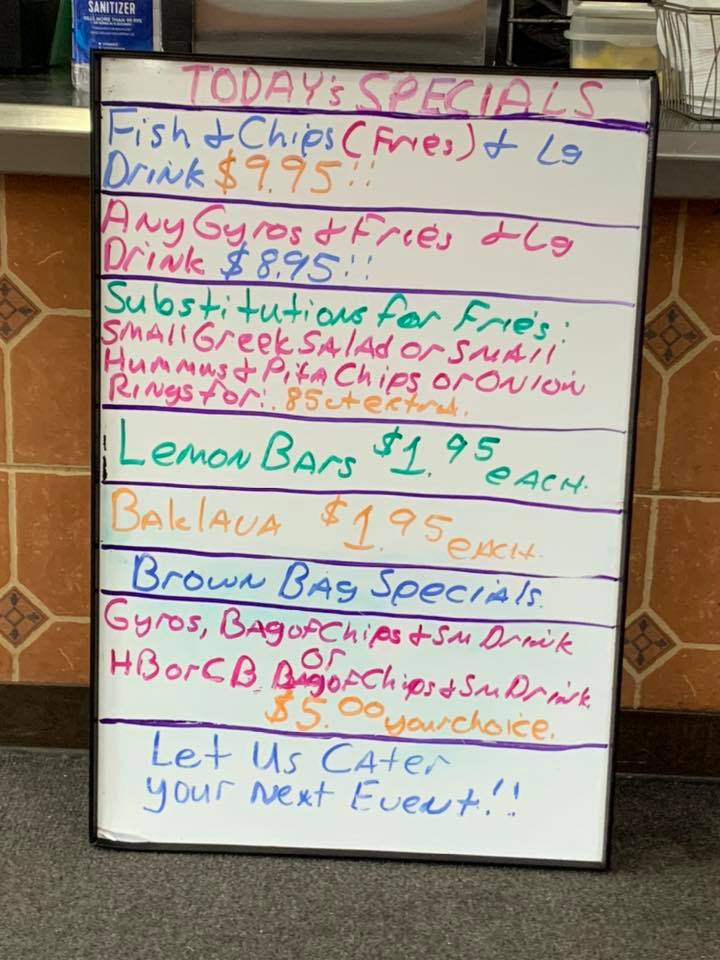 SANITIZER
KILLS MORE THAN 99.99%
TODAY'S SPECIALS
Fish & Chips (Fries) & Lg
Drink $9.95!!
Any Gyros & Fries & Lg
Drink $8.95!!
Substitutions for Fries:
Small Greek Salad or Small
Hummus & Pita Chips or Onion
Rings for: .85ct extra.
Lemon Bars $1.95 each.
Baklava $1.95 each.
Brown Bag Specials.
Gyros, Bag of Chips & Sm Drink
or
HB or CB Bag of Chips & Sm Drink.
$5.00 your choice.
Let Us Cater
your Next Event!!